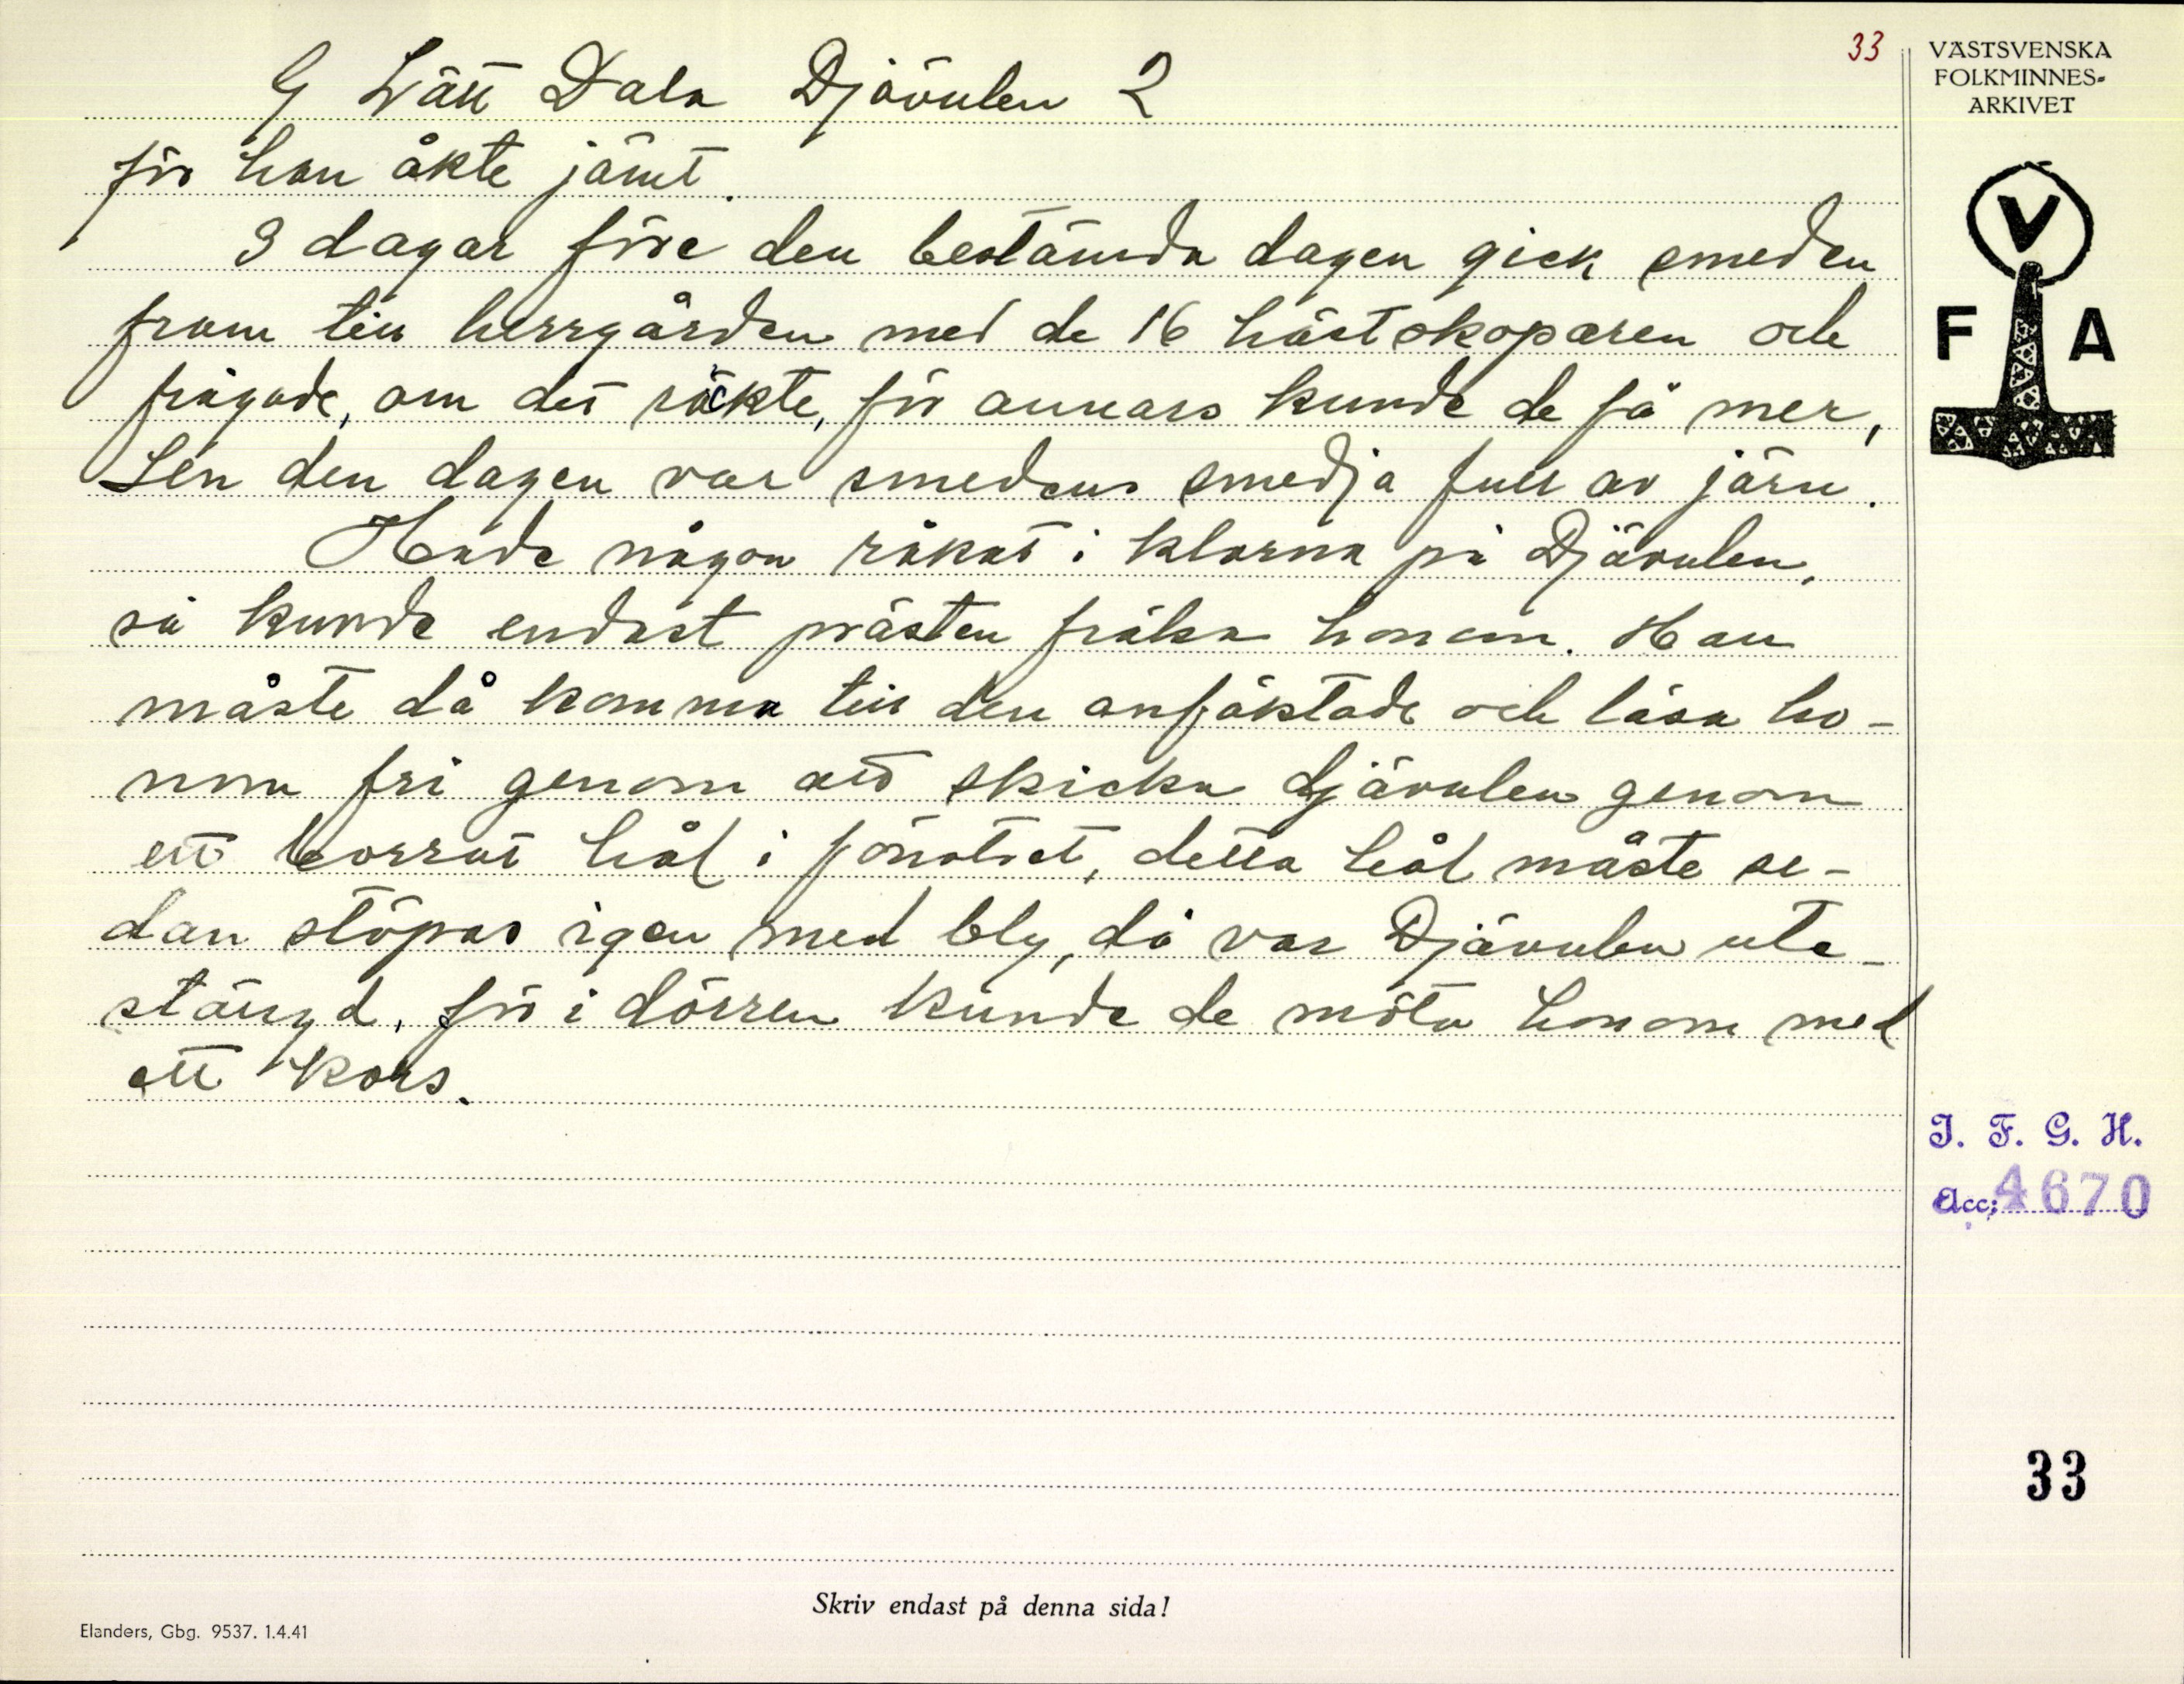 33
VÄSTSVENSKA
FOLKMINNES-
ARKIVET
G Lätt Dala Djävulen 2
för han åkte jämt.
3 dagar före den bestämda dagen gick smeden
fram till herrgården med de 16 hästskoparen och
frågade, om det räckte, för annars kunde de få mer,
Sen den dagen var smedens smedja full av järn.
Hade någon råkat i klorna på Djävulen,
så kunde endast prästen frälsa honom. Han
måste då komma till den anfäktade och läsa ho-
nom fri genom att skicka djävulen genom
ett borrat hål i fönstret, detta hål måste se-
dan stöpas igen med bly, då var Djävulen ute-
stängd, för i dörren kunde de möta honom med
ett kors.
V
F A
I. F. G. H.
Acc: 4670
33
Skriv endast på denna sida!
Elanders, Gbg. 9537. 1.4.41